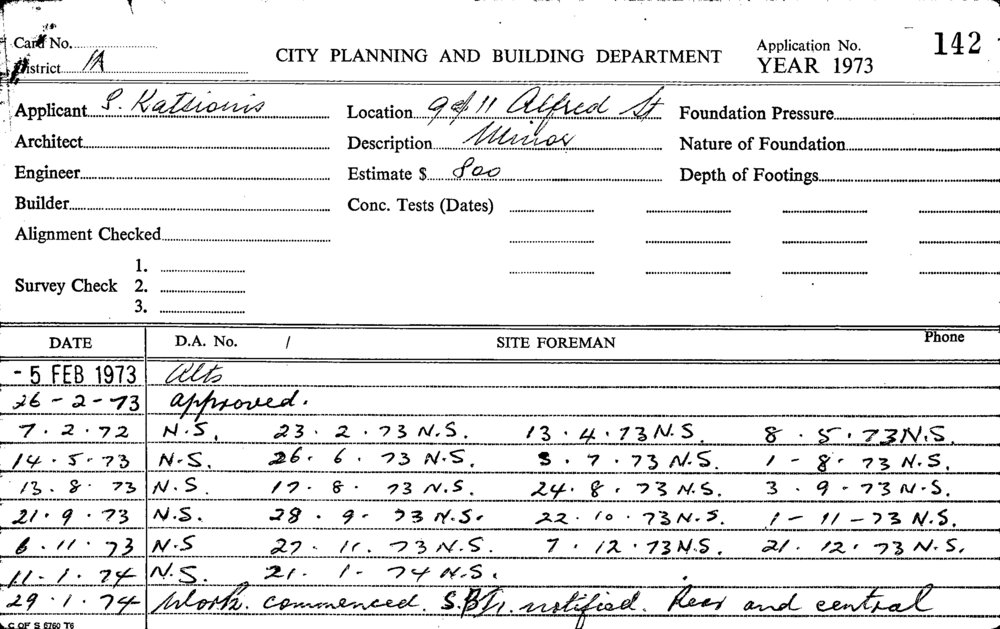 Card No.
District 1A
CITY PLANNING AND BUILDING DEPARTMENT
Application No. 142
YEAR 1973
Applicant S. Katsionis
Location 9 of 11 Alfred St
Foundation Pressure
Architect
Description Minor
Nature of Foundation
Engineer
Estimate $ 800
Depth of Footings
Builder
Conc. Tests (Dates)
Alignment Checked
Survey Check 1.
2.
3.
DATE D.A. No. / SITE FOREMAN Phone
- 5 FEB 1973 Alts
26 - 2 - 73 approved.
7 . 2 . 72 N.S. 23 . 2 . 73 N.S. 13 . 4 . 73 N.S. 8 . 5 . 73 N.S.
14 . 5 . 73 N.S. 26 . 6 . 73 N.S. 3 . 7 . 73 N.S. 1 - 8 . 73 N.S.
13 . 8 . 73 N.S. 17 . 8 . 73 N.S. 24 . 8 . 73 N.S. 3 . 9 . 73 N.S.
21 . 9 . 73 N.S. 28 . 9 . 73 N.S. 22 . 10 . 73 N.S. 1 - 11 - 73 N.S.
6 . 11 . 73 N.S 27 . 11 . 73 N.S. 7 . 12 . 73 N.S. 21 . 12 . 73 N.S.
11 . 1 . 74 N.S. 21 . 1 . 74 N.S.
29 . 1 . 74 Work commenced. notified. Rear and central
C OF S 6760 T6